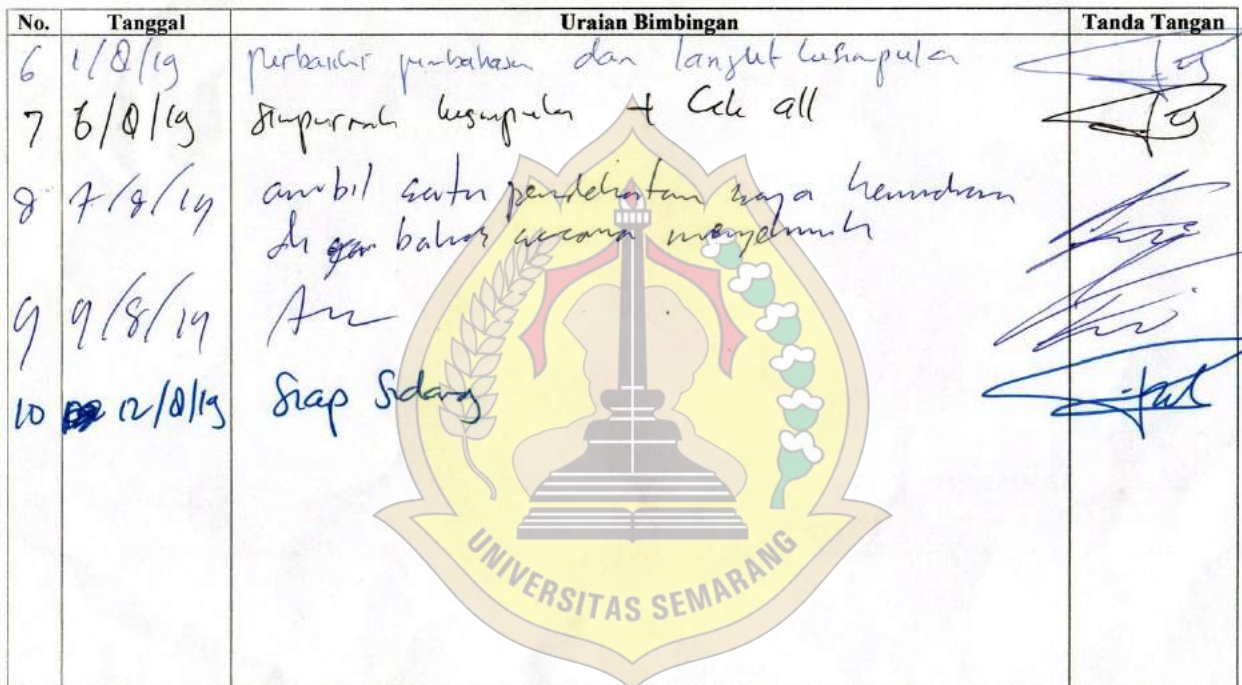 No. Tanggal Uraian Bimbingan Tanda Tangan
6 1/8/19 perbaiki pembahasan dan lanjut kesimpulan
7 6/8/19 kesimpulan + Cek all
8 7/8/19 ambil satu pendekatan saja kemudian
di bahas secara menyeluruh
9 9/8/19 Acc
10 12/8/19 Siap Sidang
UNIVERSITAS SEMARANG